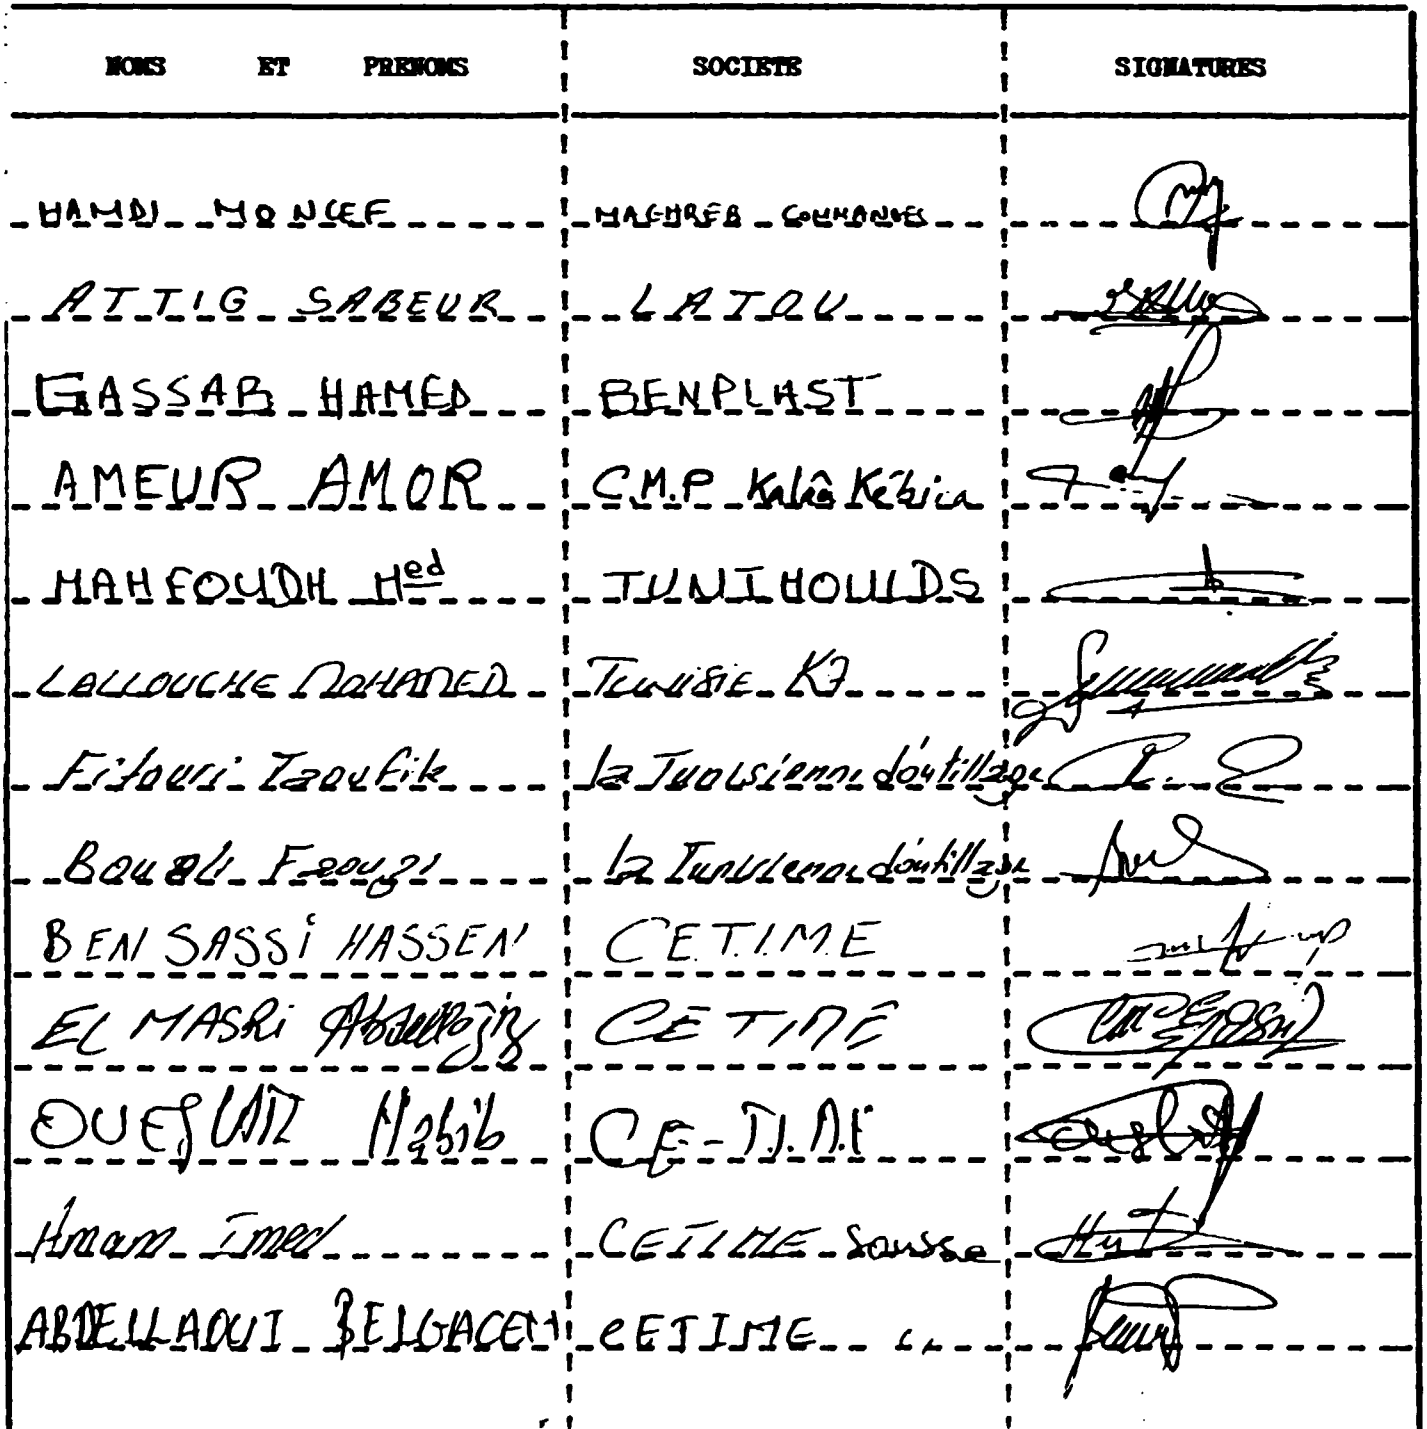 NOMS ET PRENOMS SOCIETE SIGNATURES
HAMDI MONCEF MAGHREB COMMANDES
ATTIG SABEUR LATOU
GASSAB HAMED BENPLAST
AMEUR AMOR C.M.P Kalâa Kébira
MAHFOUDH Med TUNIMOULDS
LALLOUCHE MOHAMED TUNISIE K7
Fitouri Taoufik la Tunisienne d'outillage
Bouali Faouzi la Tunisienne d'outillage
BEN SASSI HASSEN C.E.T.I.M.E
EL MASRI Abdellaziz CETIME
OUESLATI Habib C.E-T.I.M.E
Hmam Imed CETIME Sousse
ABDELLAOUI BELGACEM CETIME "